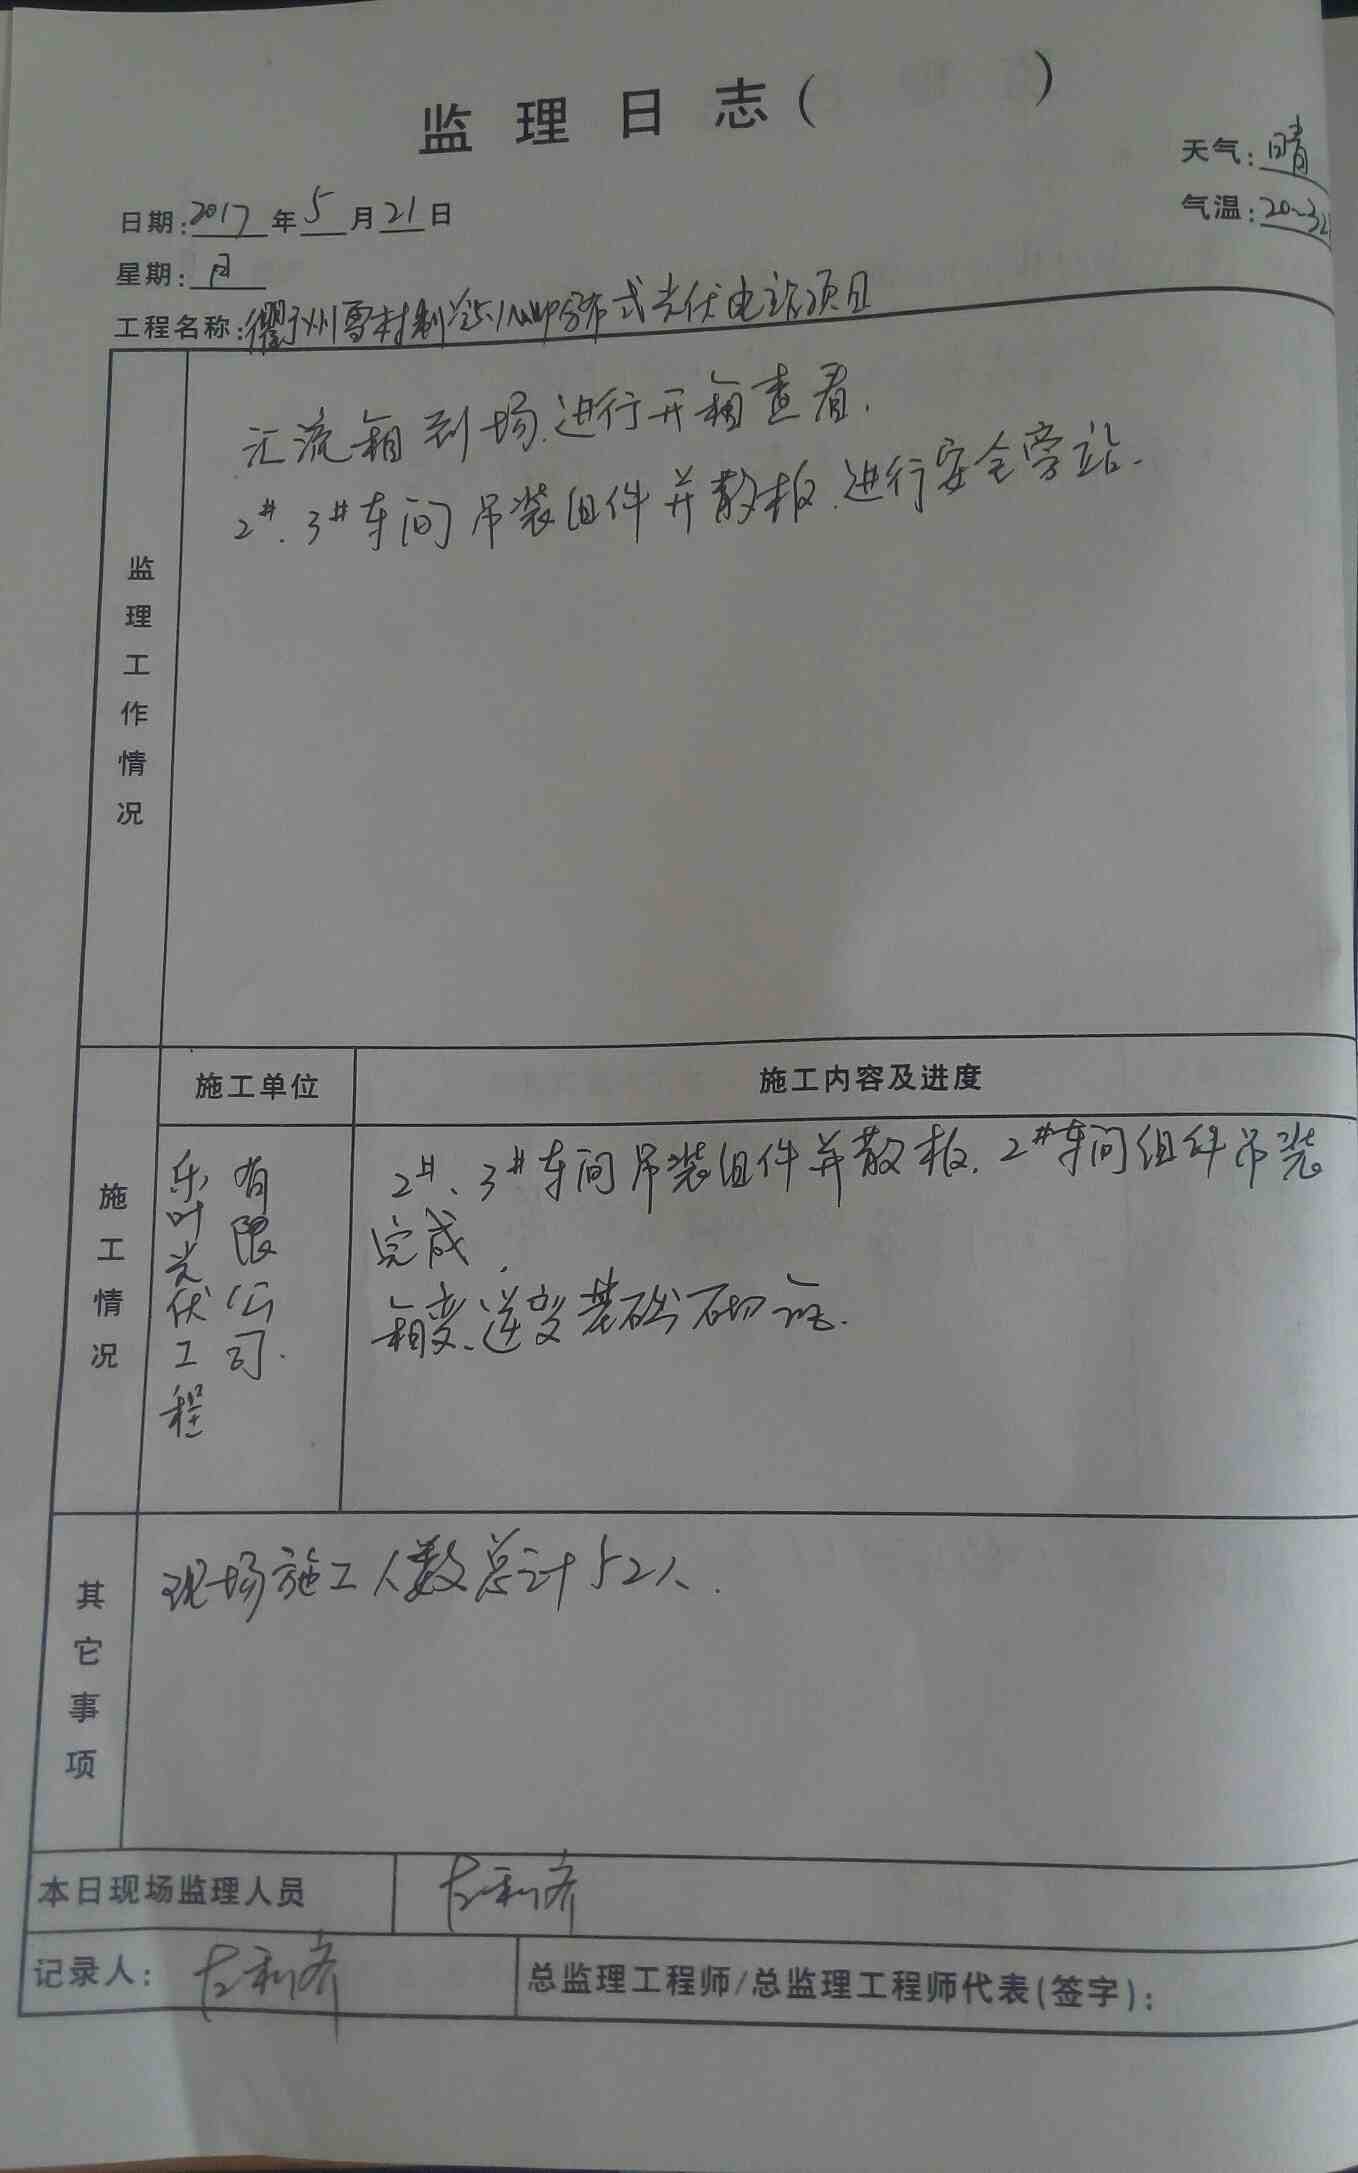 监理日志( )
天气:晴
日期:2017年5月21日
气温:20~32
星期:日
工程名称:衢州雪村制冷5.1MWP分布式光伏电站项目
监理工作情况
汇流箱到场.进行开箱查看.
2#.3#车间吊装组件并散板.进行安全旁站.
施工情况
施工单位
施工内容及进度
乐叶光伏工程
有限公司.
2#、3#车间吊装组件并散板.2#车间组件吊装
完成.
箱变、逆变基础石切.
其它事项
现场施工人数总计52人.
本日现场监理人员
记录人:
总监理工程师/总监理工程师代表(签字):